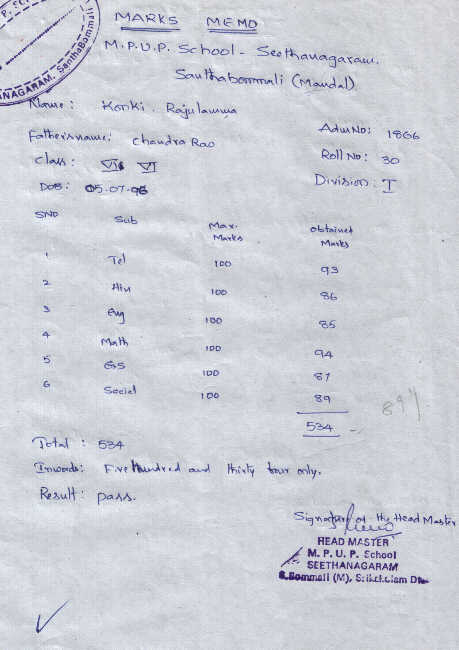 NAGARAM, SanthaBommali
MARKS MEMO
M.P.U.P. School - Seethanagaram.
Santhabommali (Mandal)
Name: Konki. Rajulamma
Admn No: 1866
Father's name: Chandra Rao
Roll No: 30
Class: VI
Division: I
DOB: 05-07-96
SNO Sub Max. Marks Obtained Marks
1 Tel 100 93
2 Hin 100 86
3 Eng 100 85
4 Math 100 94
5 GS 100 87
6 Social 100 89
534
89%
Total: 534
Inwords: Five hundred and thirty four only.
Result: pass.
Signature of the Head Master
HEAD MASTER
M. P. U. P. School
SEETHANAGARAM
S.Bommali (M), Srikakulam Dt.